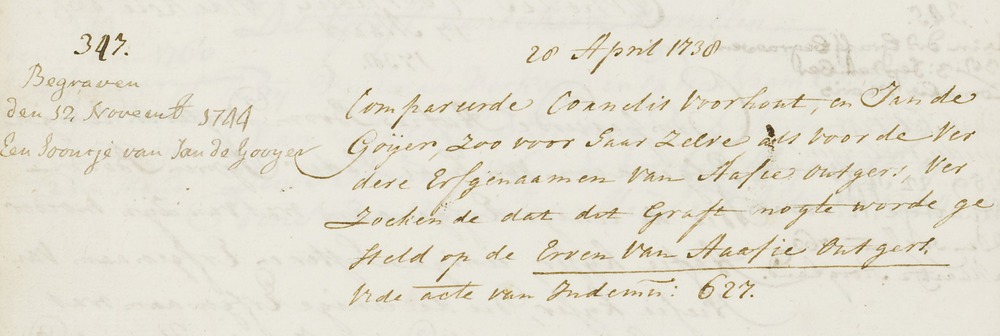 347.
Begraven
den 12 Novemb 1744
Een Soontje van Jan de Gooyer
28 April 1738
Compareerde Cornelis Voorhout, en Jan de
Goijer, Zoo voor haar Zelve als voor de Ver
dere Erfgenaamen van Aafie outgers Ver
Zoekende dat dit Graft mogte worde ge
steld op de Erven van Aaafie Outgers.
Vide acte van Indemn: 627.